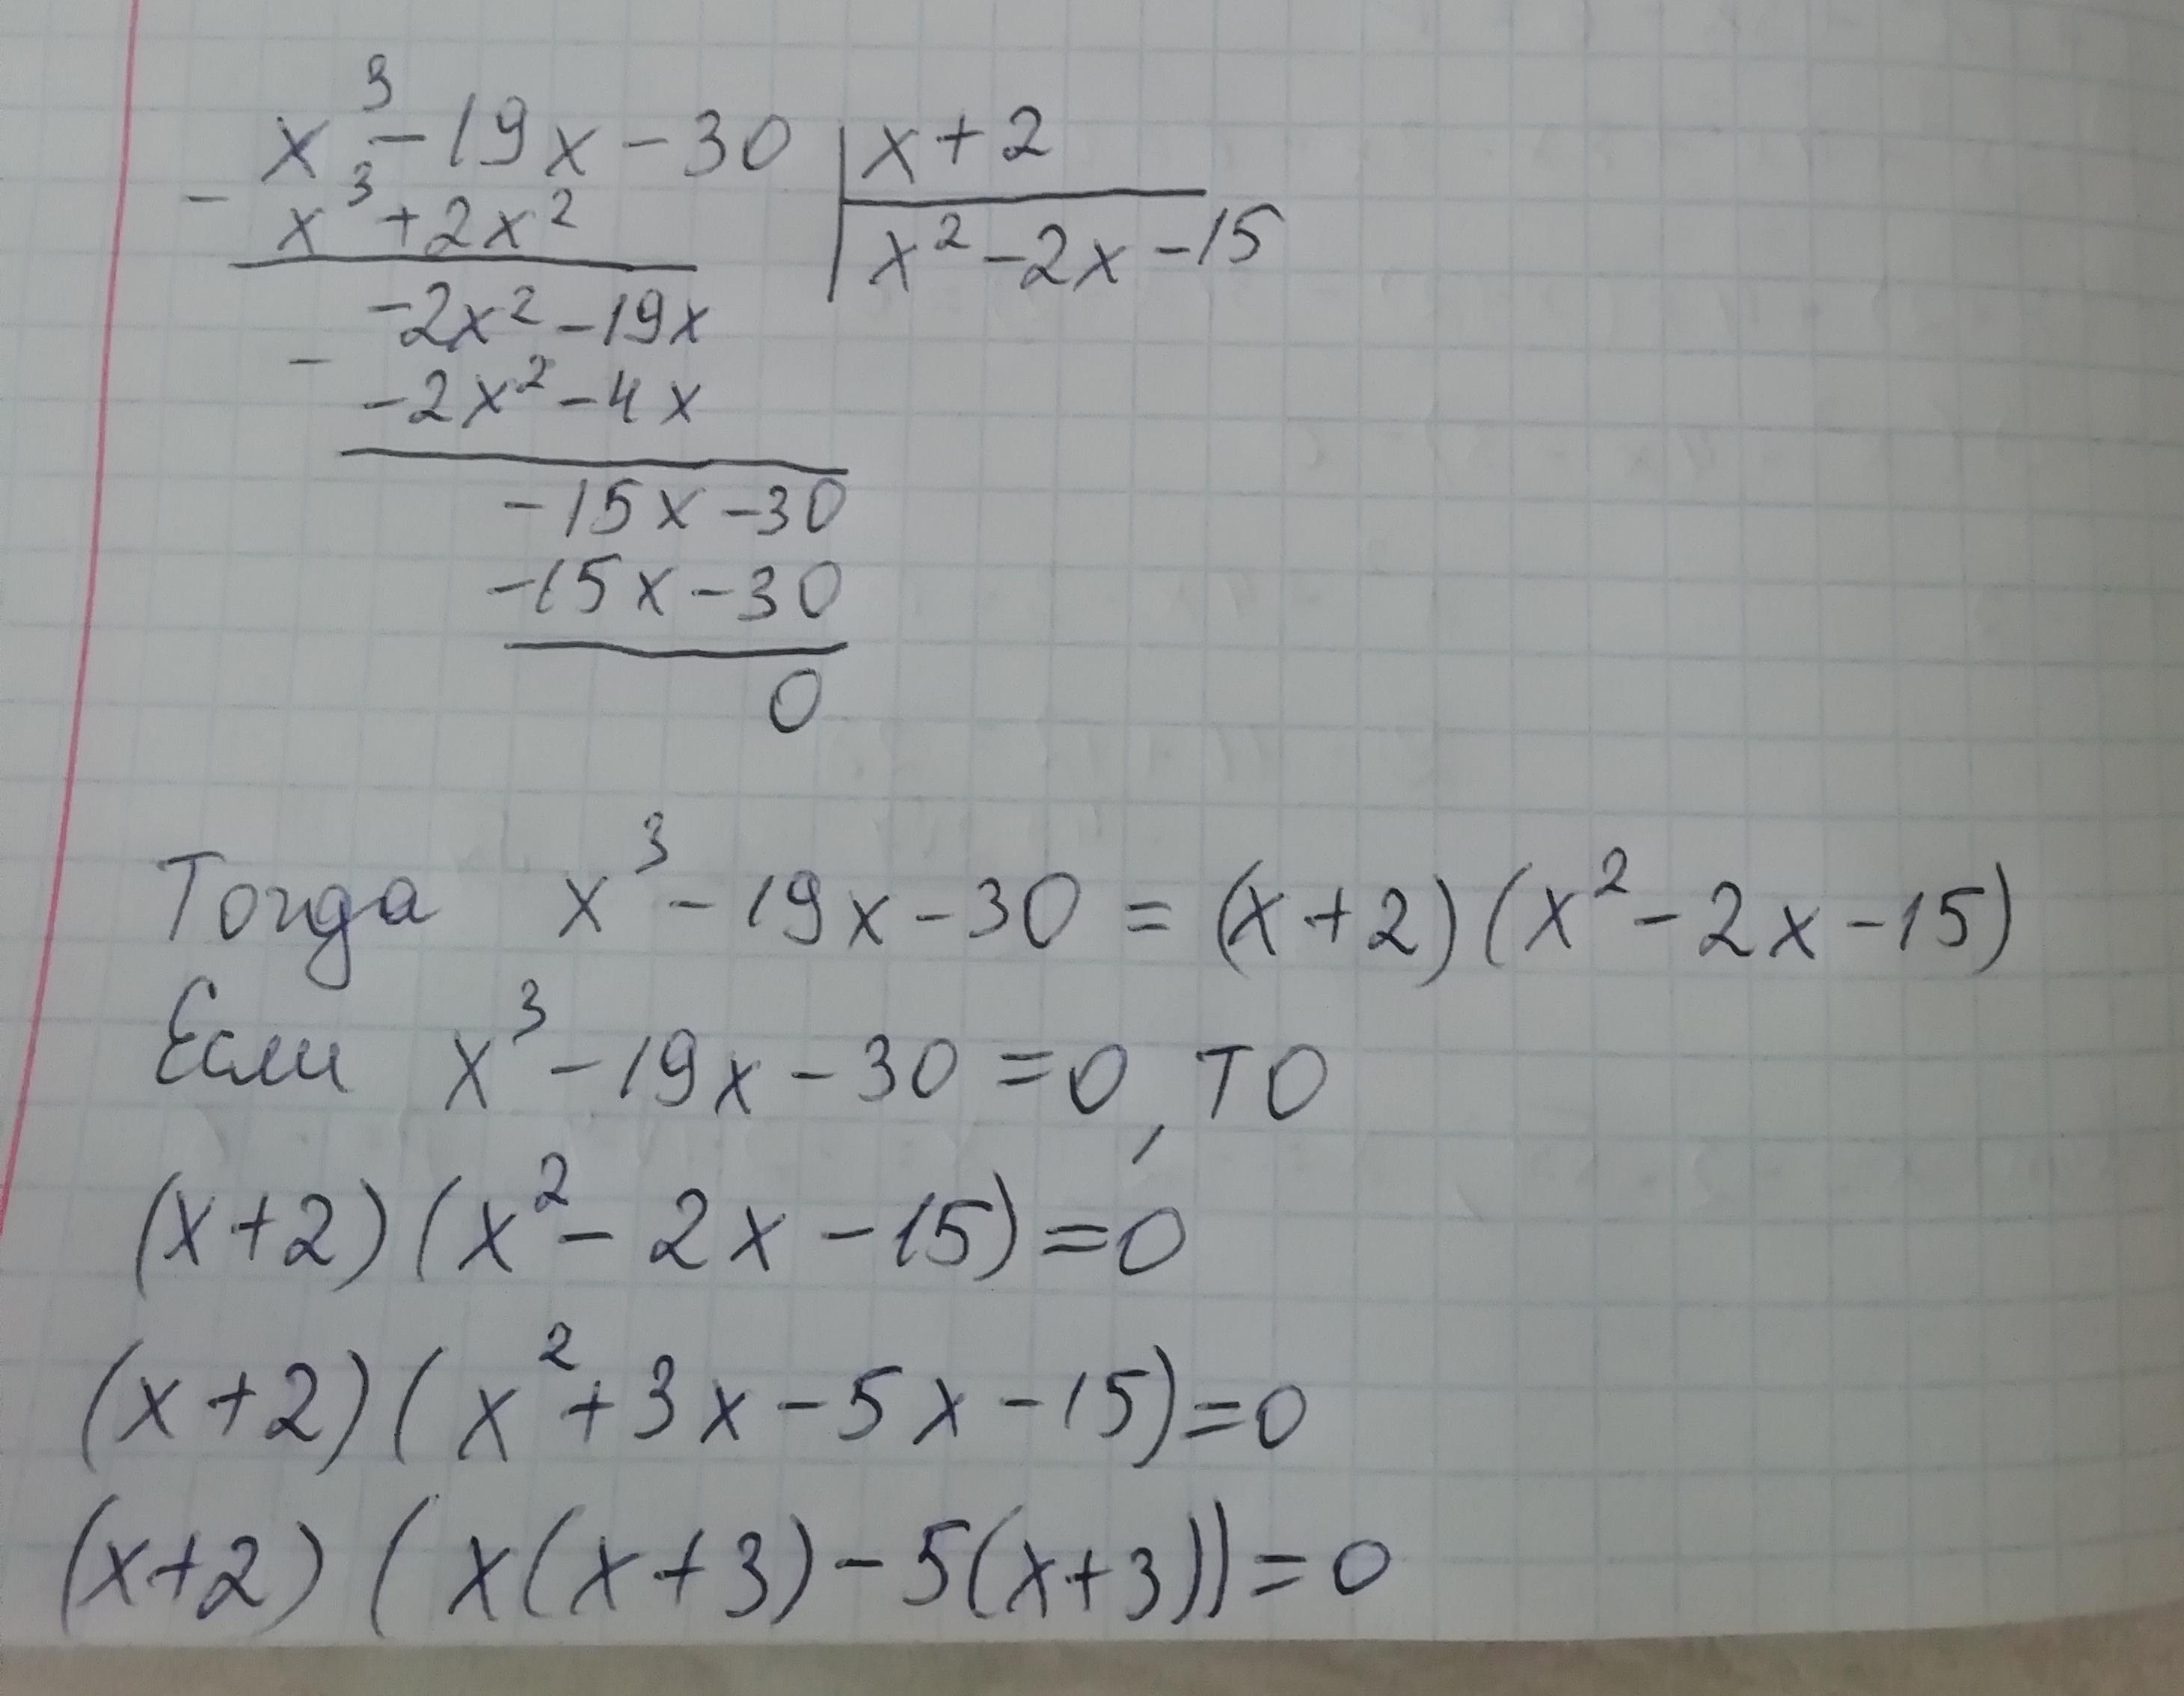 x³ - 19x - 30 | x + 2
- x³ + 2x² | x² - 2x - 15
-2x² - 19x
- -2x² - 4x
-15x - 30
-15x - 30
0
Тогда x³ - 19x - 30 = (x + 2)(x² - 2x - 15)
Если x³ - 19x - 30 = 0, то
(x + 2)(x² - 2x - 15) = 0
(x + 2)(x² + 3x - 5x - 15) = 0
(x + 2)(x(x + 3) - 5(x + 3)) = 0